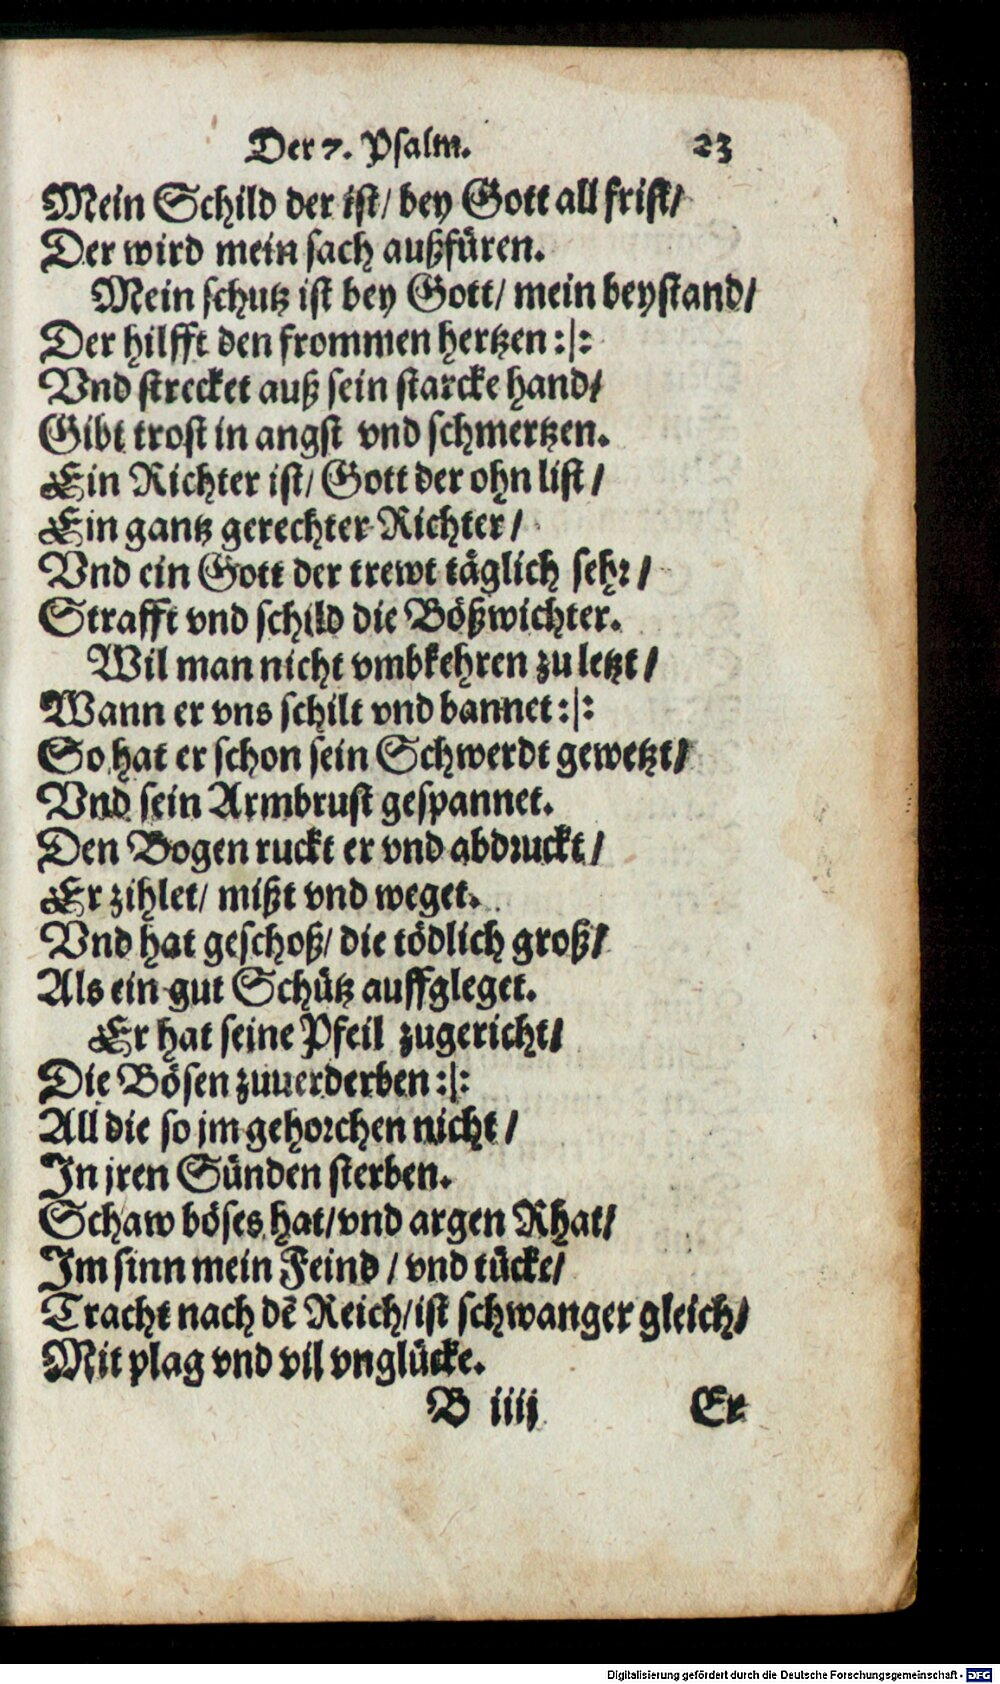 Der 7. Psalm. 23
Mein Schild der ist/ bey Gott all frist/
Der wird mein sach außfüren.
Mein schutz ist bey Gott/ mein beystand/
Der hilfft den frommen hertzen :|:
Vnd strecket auß sein starcke hand/
Gibt trost in angst vnd schmertzen.
Ein Richter ist/ Gott der ohn list/
Ein gantz gerechter Richter/
Vnd ein Gott der trewt täglich sehr/
Strafft vnd schild die Bößwichter.
Wil man nicht vmbkehren zu letzt/
Wann er vns schilt vnd bannet :|:
So hat er schon sein Schwerdt gewetzt/
Vnd sein Armbrust gespannet.
Den Bogen ruckt er vnd abdruckt/
Er zihlet/ mißt vnd weget.
Vnd hat geschoß/ die tödlich groß/
Als ein gut Schütz auffgleget.
Er hat seine Pfeil zugericht/
Die Bösen zuuerderben :|:
All die so jm gehorchen nicht/
In jren Sünden sterben.
Schaw böses hat/ vnd argen Rhat/
Im sinn mein Feind/ vnd tücke/
Tracht nach dē Reich/ ist schwanger gleich/
Mit plag vnd vil vnglücke.
B iiij Er
Digitalisierung gefördert durch die Deutsche Forschungsgemeinschaft - DFG